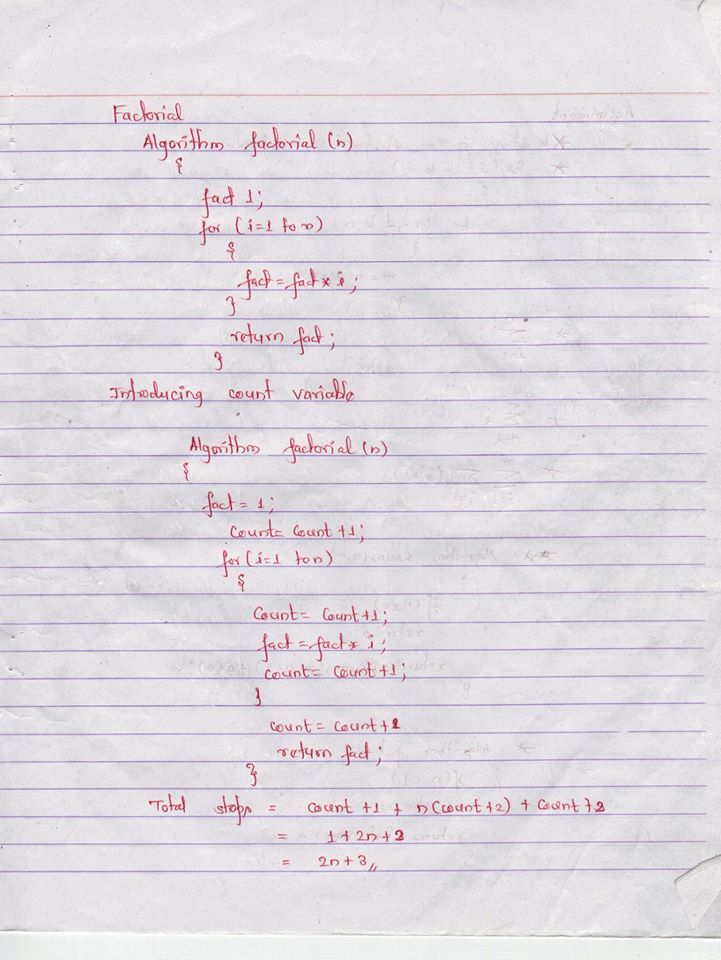 Factorial
Algorithm factorial (n)
{
fact 1;
for (i=1 to n)
{
fact = fact * i;
}
return fact;
}
Introducing count variable
Algorithm factorial (n)
{
fact = 1;
count = count +1;
for (i=1 to n)
{
count = count +1;
fact = fact * i;
count = count +1;
}
count = count +2
return fact;
}
Total steps = count +1 + n(count+2) + count +2
= 1 + 2n + 2
= 2n+3,,